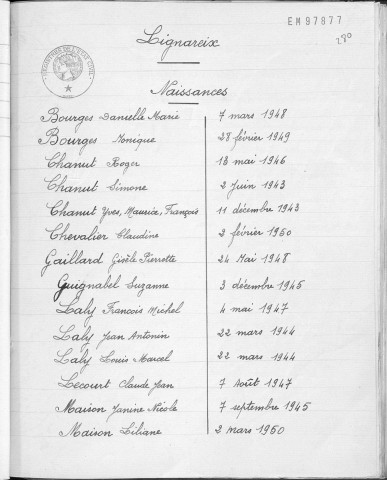 EM97877
280
Lignareix
Naissances
Bourges Danielle Marie 7 mars 1948
Bourges Monique 28 février 1949
Chanut Roger 18 mai 1946
Chanut Simone 2 Juin 1943
Chanut Yves, Maurice, François 11 décembre 1943
Chevalier Claudine 2 février 1950
Gaillard Gisèle Pierrette 24 Mai 1948
Guignabel Suzanne 3 décembre 1945
Laly François Michel 4 mai 1947
Laly Jean Antonin 22 mars 1944
Laly Louis Marcel 22 mars 1944
Lecourt Claude Jean 7 Août 1947
Maison Janine Nicole 7 septembre 1945
Maison Liliane 2 mars 1950